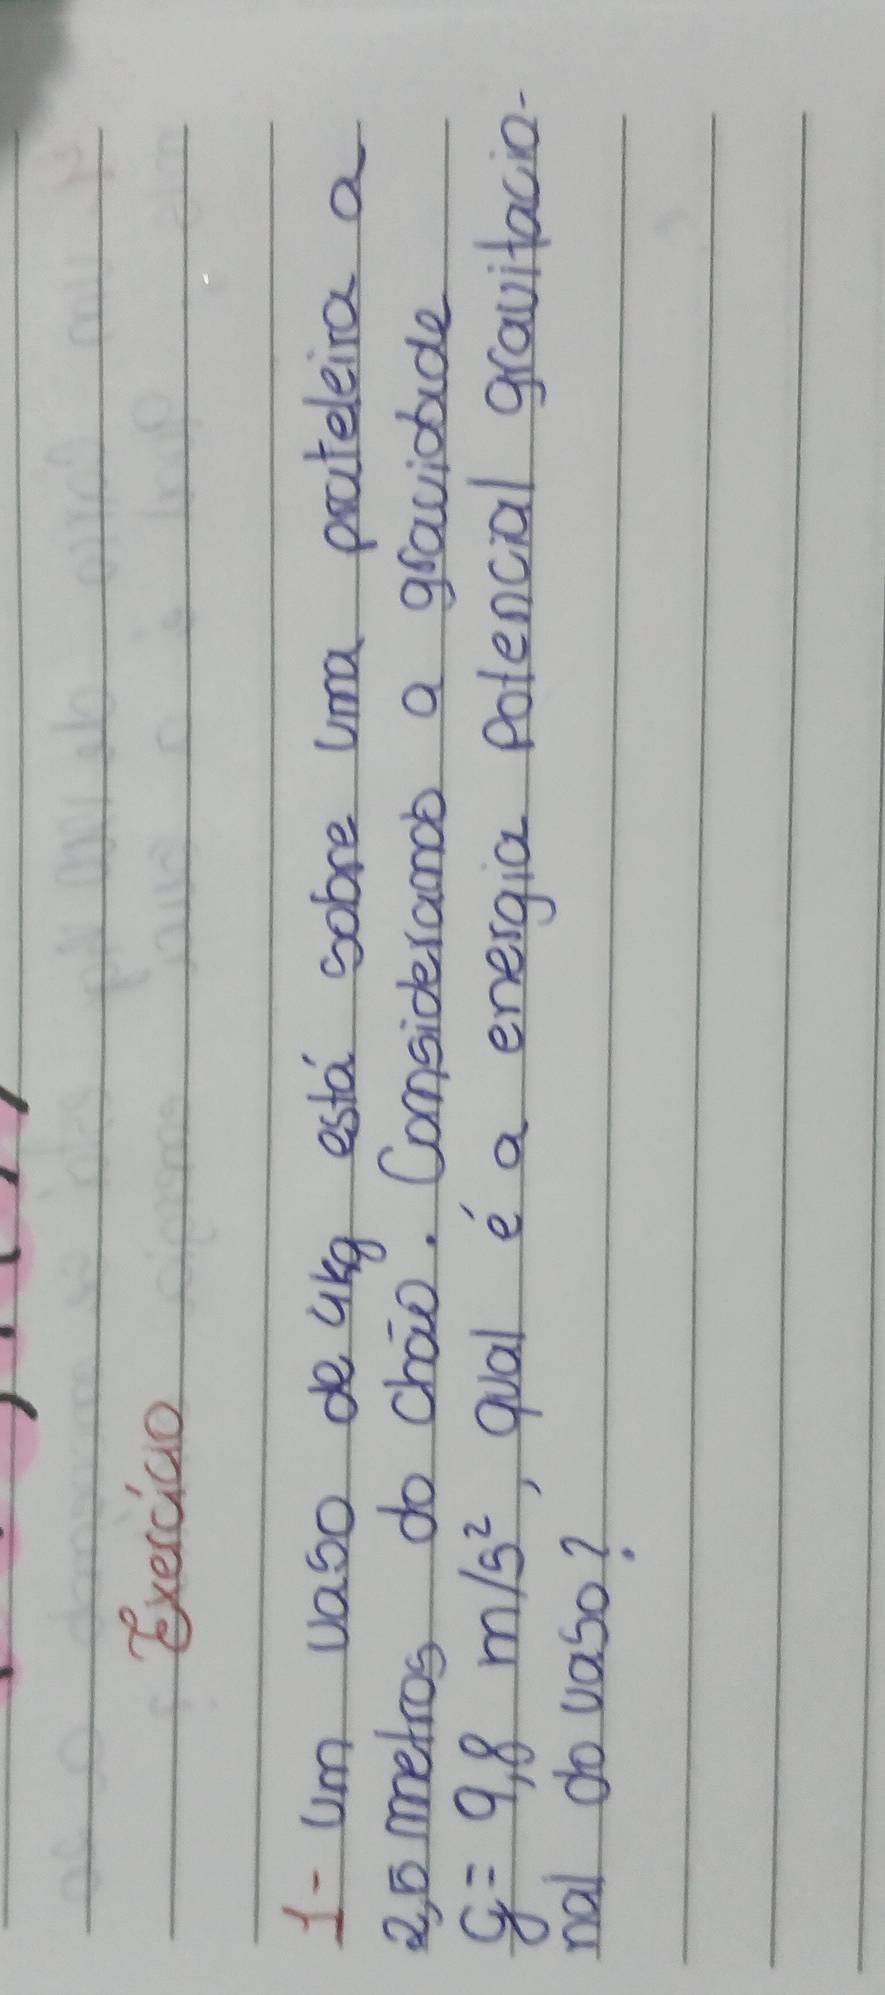 Exercício
1- Um vaso de 4kg está sobre uma prateleira a
2,5 metros do chão. Considerando a gravidade
g= 9,8 m/s², qual é a energia potencial gravitacio-
nal do vaso?